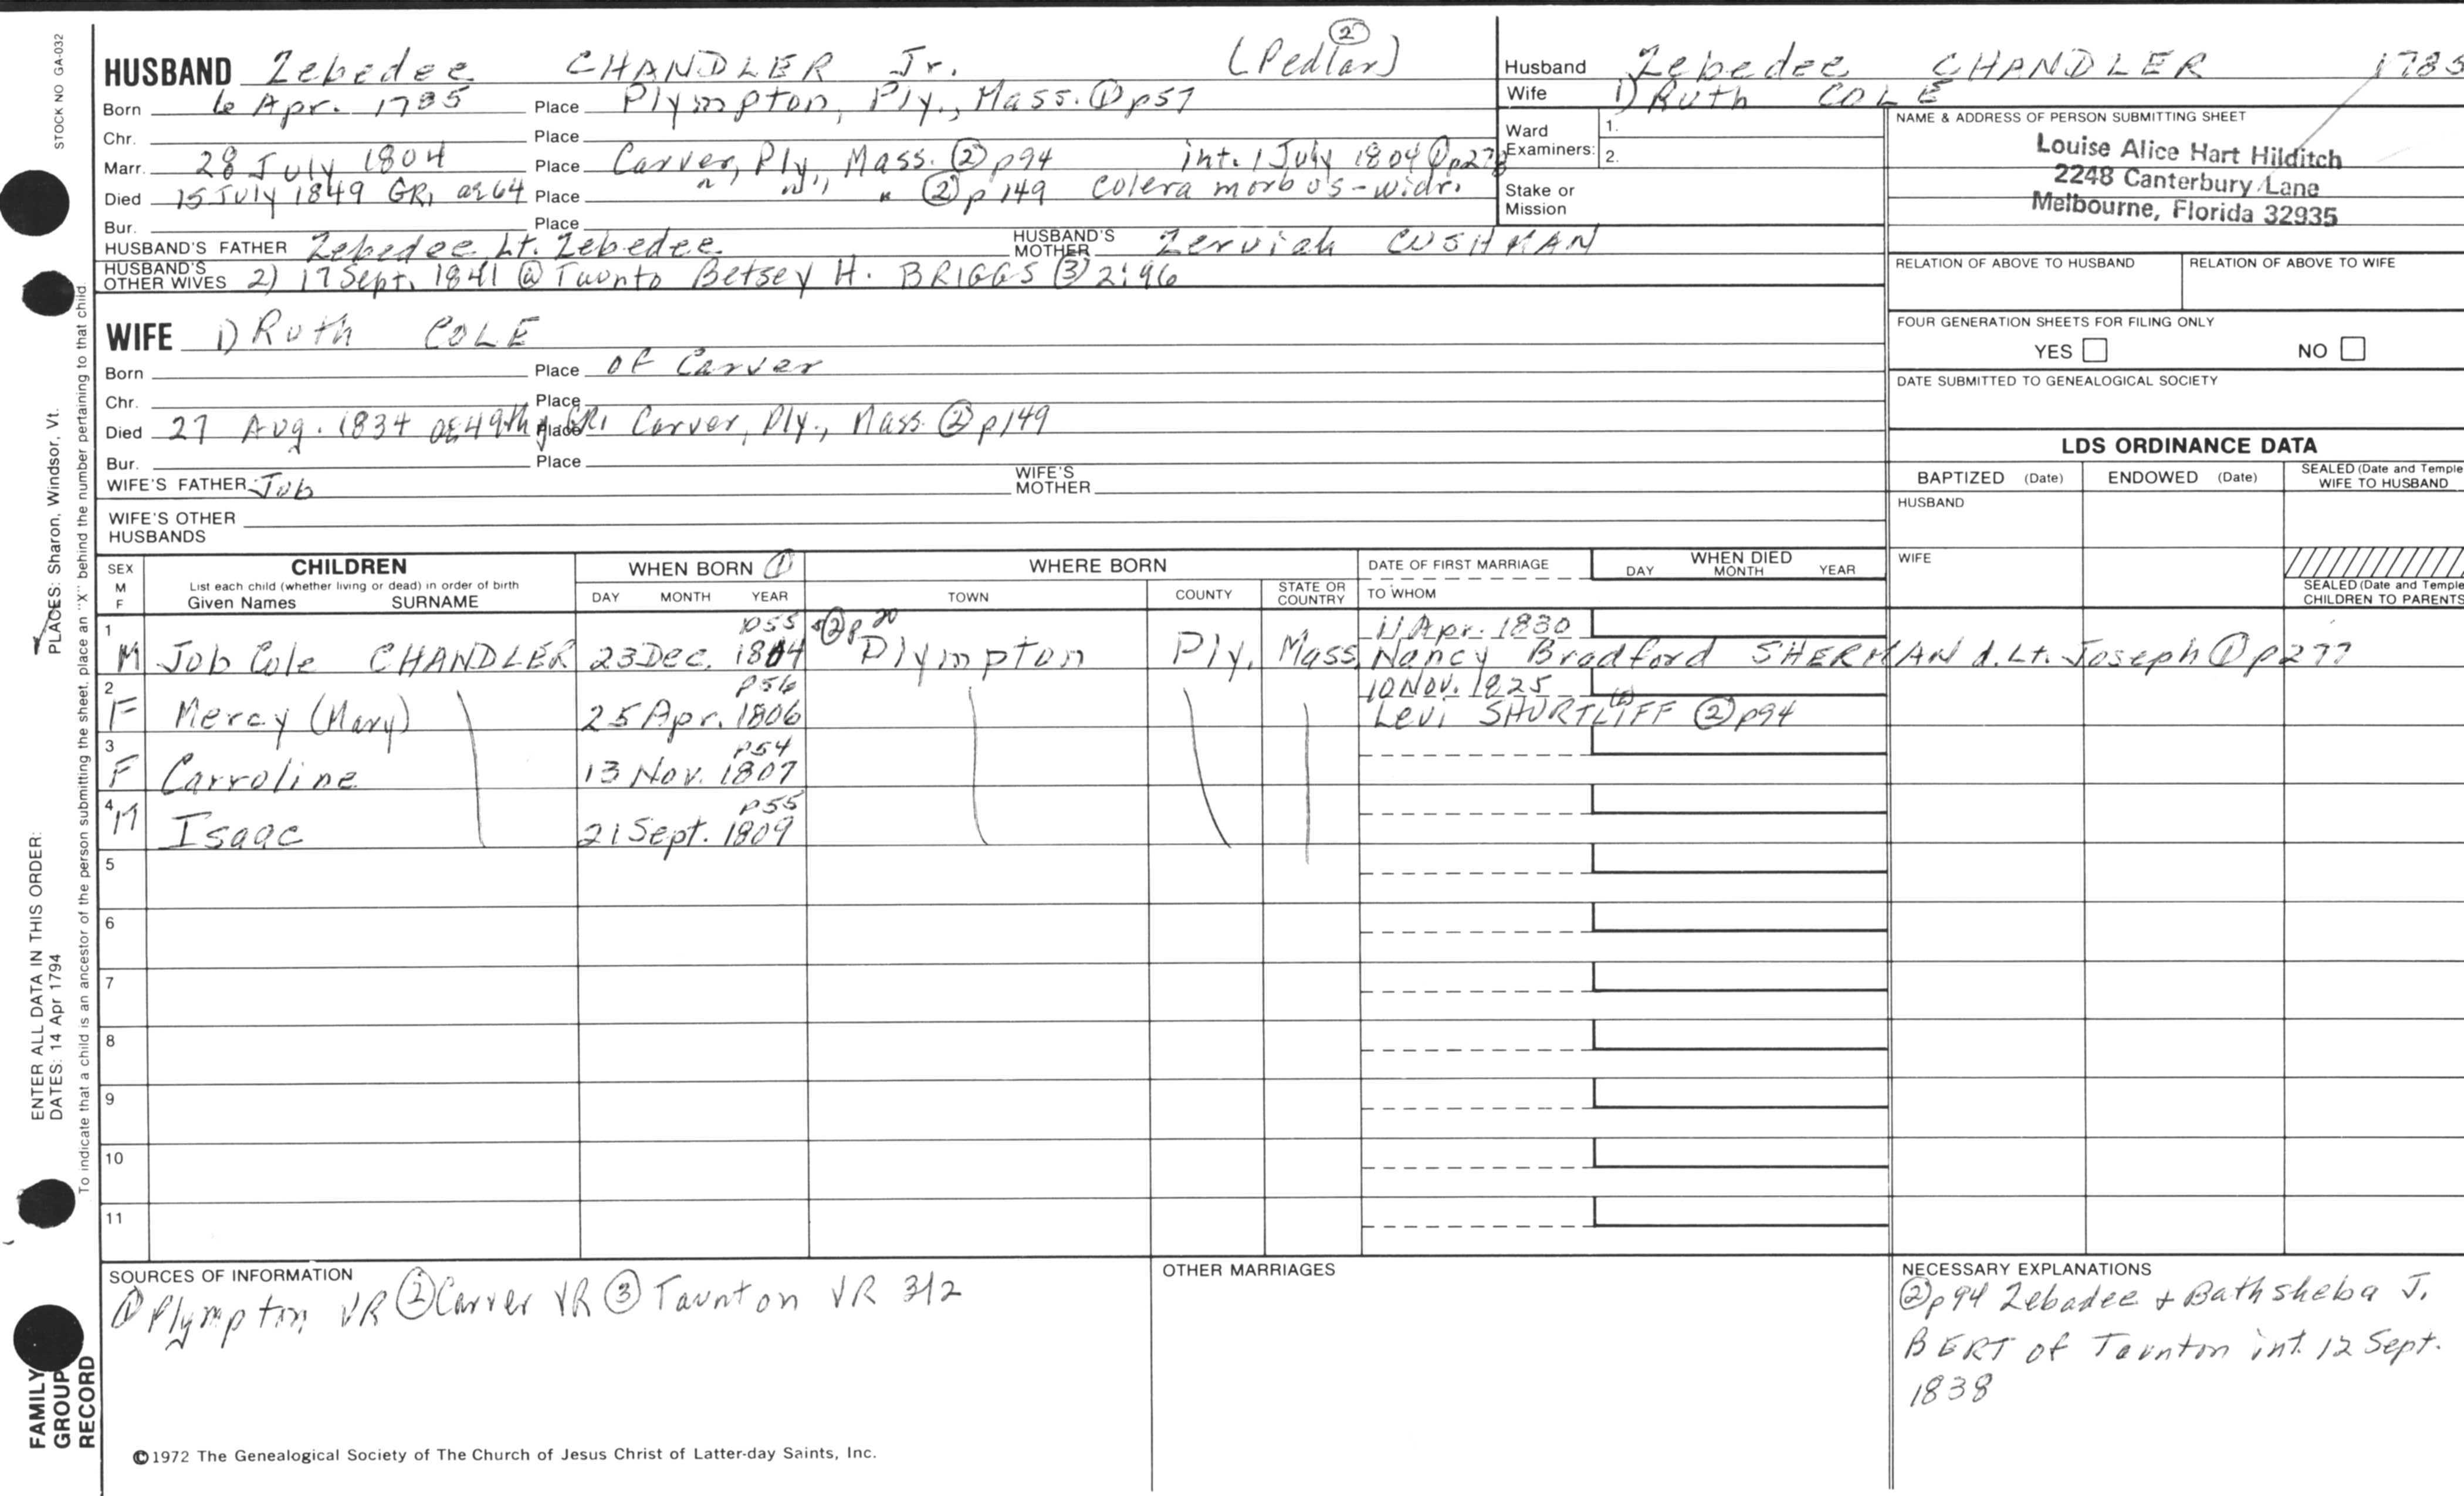 STOCK NO GA-032
HUSBAND Zebedee CHANDLER Jr. (Pedlar) ②
Born 6 Apr. 1785 Place Plympton, Ply., Mass. ① p57
Chr. Place
Marr. 28 July 1804 Place Carver, Ply, Mass. ② p94 int. 1 July 1804 ① p278
Died 15 July 1849 GR1 ae 64 Place " " " ② p149 Colera morbus - widr.
Bur. Place
HUSBAND'S FATHER Zebedee, Lt. Zebedee HUSBAND'S MOTHER Zerviah CUSHMAN
HUSBAND'S OTHER WIVES 2) 17 Sept. 1841 @ Taunto Betsey H. BRIGGS ③ 2:96
WIFE 1) Ruth COLE
Born Place of Carver
Chr. Place
Died 27 Aug. 1834 ae 49th y GR1 Place Carver, Ply., Mass. ② p149
Bur. Place
WIFE'S FATHER Job WIFE'S MOTHER
WIFE'S OTHER HUSBANDS
Husband Zebedee CHANDLER 1785
Wife 1) Ruth COLE
Ward Examiners: 1.
2.
Stake or Mission
NAME & ADDRESS OF PERSON SUBMITTING SHEET
Louise Alice Hart Hilditch
2248 Canterbury Lane
Melbourne, Florida 32935
RELATION OF ABOVE TO HUSBAND RELATION OF ABOVE TO WIFE
FOUR GENERATION SHEETS FOR FILING ONLY
YES NO
DATE SUBMITTED TO GENEALOGICAL SOCIETY
LDS ORDINANCE DATA
BAPTIZED (Date) ENDOWED (Date) SEALED (Date and Temple) WIFE TO HUSBAND
HUSBAND
WIFE
SEALED (Date and Temple) CHILDREN TO PARENTS
SEX M F CHILDREN WHEN BORN ① WHERE BORN DATE OF FIRST MARRIAGE WHEN DIED
List each child (whether living or dead) in order of birth
Given Names SURNAME DAY MONTH YEAR TOWN COUNTY STATE OR COUNTRY TO WHOM DAY MONTH YEAR
1 p55 ② p20 11 Apr. 1830
M Job Cole CHANDLER 23 Dec. 1804 Plympton Ply. Mass Nancy Bradford SHERMAN d. Lt. Joseph ① p277
2 p56 10 Nov. 1825
F Mercy (Mary) 25 Apr. 1806 Levi SHURTLIFF ② p94
3 p54
F Carroline 13 Nov. 1807
4 p55
M Isaac 21 Sept. 1809
5
6
7
8
9
10
11
SOURCES OF INFORMATION
① Plympton VR ② Carver VR ③ Taunton VR 312
OTHER MARRIAGES
NECESSARY EXPLANATIONS
② p94 Zebadee + Bathsheba J.
BERT of Taunton int. 12 Sept.
1838
©1972 The Genealogical Society of The Church of Jesus Christ of Latter-day Saints, Inc.
FAMILY GROUP RECORD
ENTER ALL DATA IN THIS ORDER:
DATES: 14 Apr 1794
PLACES: Sharon, Windsor, Vt.
To indicate that a child is an ancestor of the person submitting the sheet, place an "X" behind the number pertaining to that child